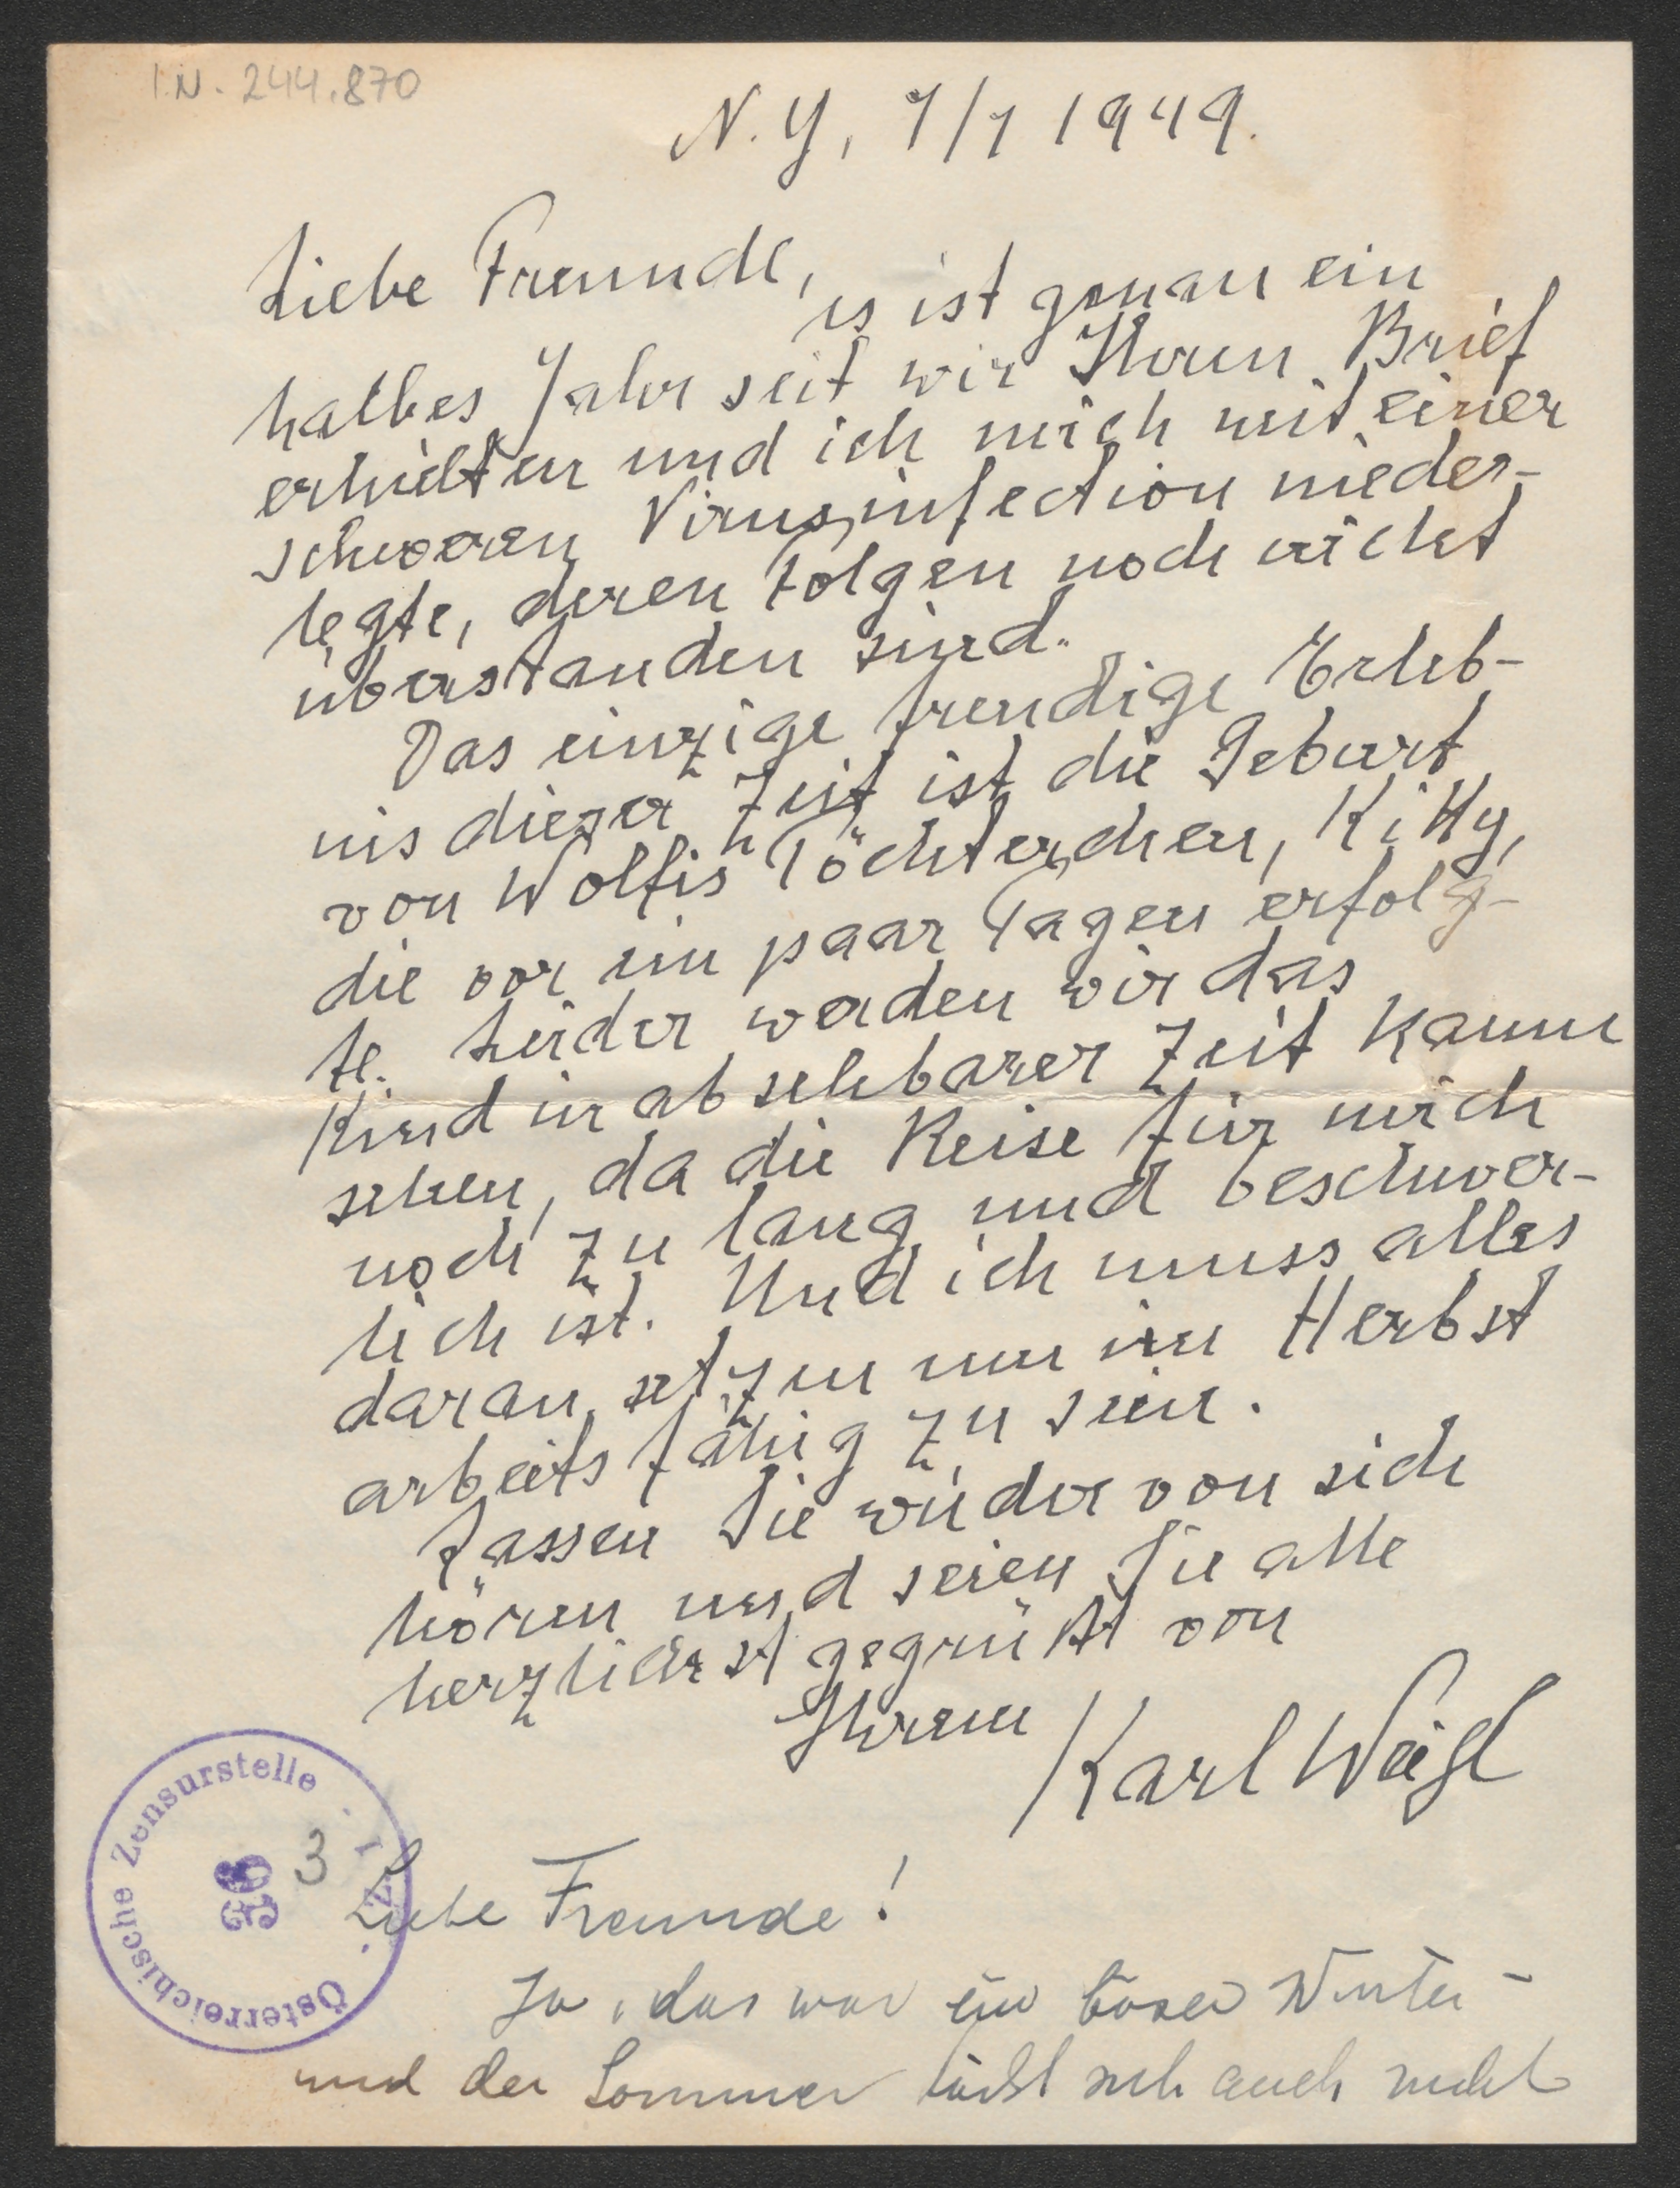 I.N. 244.870
N.Y, 7/7 1949.
Liebe Freunde,
es ist genau ein
halbes Jahr seit wir Ihren Brief
erhielten und ich mich mit einer
schweren Virusinfection nieder-
legte, deren Folgen noch nicht
überstanden sind.
Das einzige freudige Erleb-
nis dieser Zeit ist die Geburt
von Wolfis Töchterchen, Kitty,
die vor ein paar Tagen erfolg-
te. Leider werden wir das
Kind in absehbarer Zeit kaum
sehen, da die Reise für mich
noch zu lang und beschwer-
lich ist. Und ich muss alles
daran setzen um im Herbst
arbeitsfähig zu sein.
Lassen Sie wieder von sich
hören und seien Sie alle
herzlichst gegrüßt von
Ihrem
Karl Weigl
Österreichische Zensurstelle
395
3
Liebe Freunde!
Ja, das war ein böser Winter -
und der Sommer läßt sich auch nicht